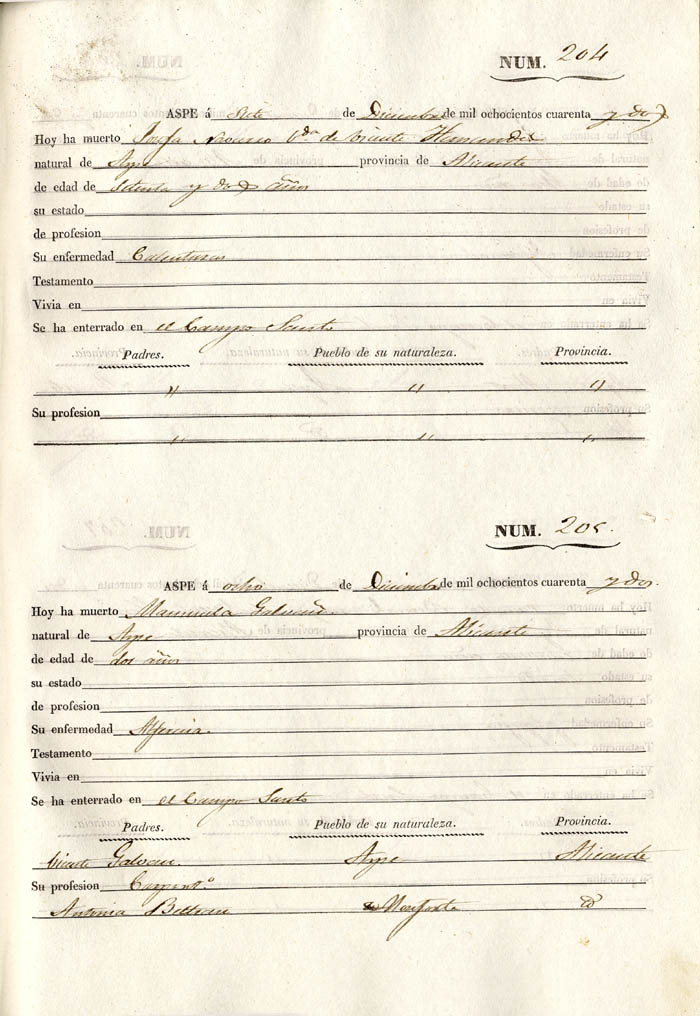 NUM. 204
ASPE á siete de Diciembre de mil ochocientos cuarenta y dos
Hoy ha muerto Josefa de Vicente Hernandez
natural de Aspe provincia de Alicante
de edad de setenta y dos años
su estado
de profesion
Su enfermedad Calenturas
Testamento
Vivia en
Se ha enterrado en el Campo Santo
Padres. Pueblo de su naturaleza. Provincia.
" " "
Su profesion
" " "
NUM. 205.
ASPE á ocho de Diciembre de mil ochocientos cuarenta y dos.
Hoy ha muerto Manuela
natural de Aspe provincia de Alicante
de edad de dos años
su estado
de profesion
Su enfermedad Alferecia.
Testamento
Vivia en
Se ha enterrado en el Campo Santo
Padres. Pueblo de su naturaleza. Provincia.
Vicente Aspe Alicante
Su profesion Carpint.º
Antonia Beltran Monforte